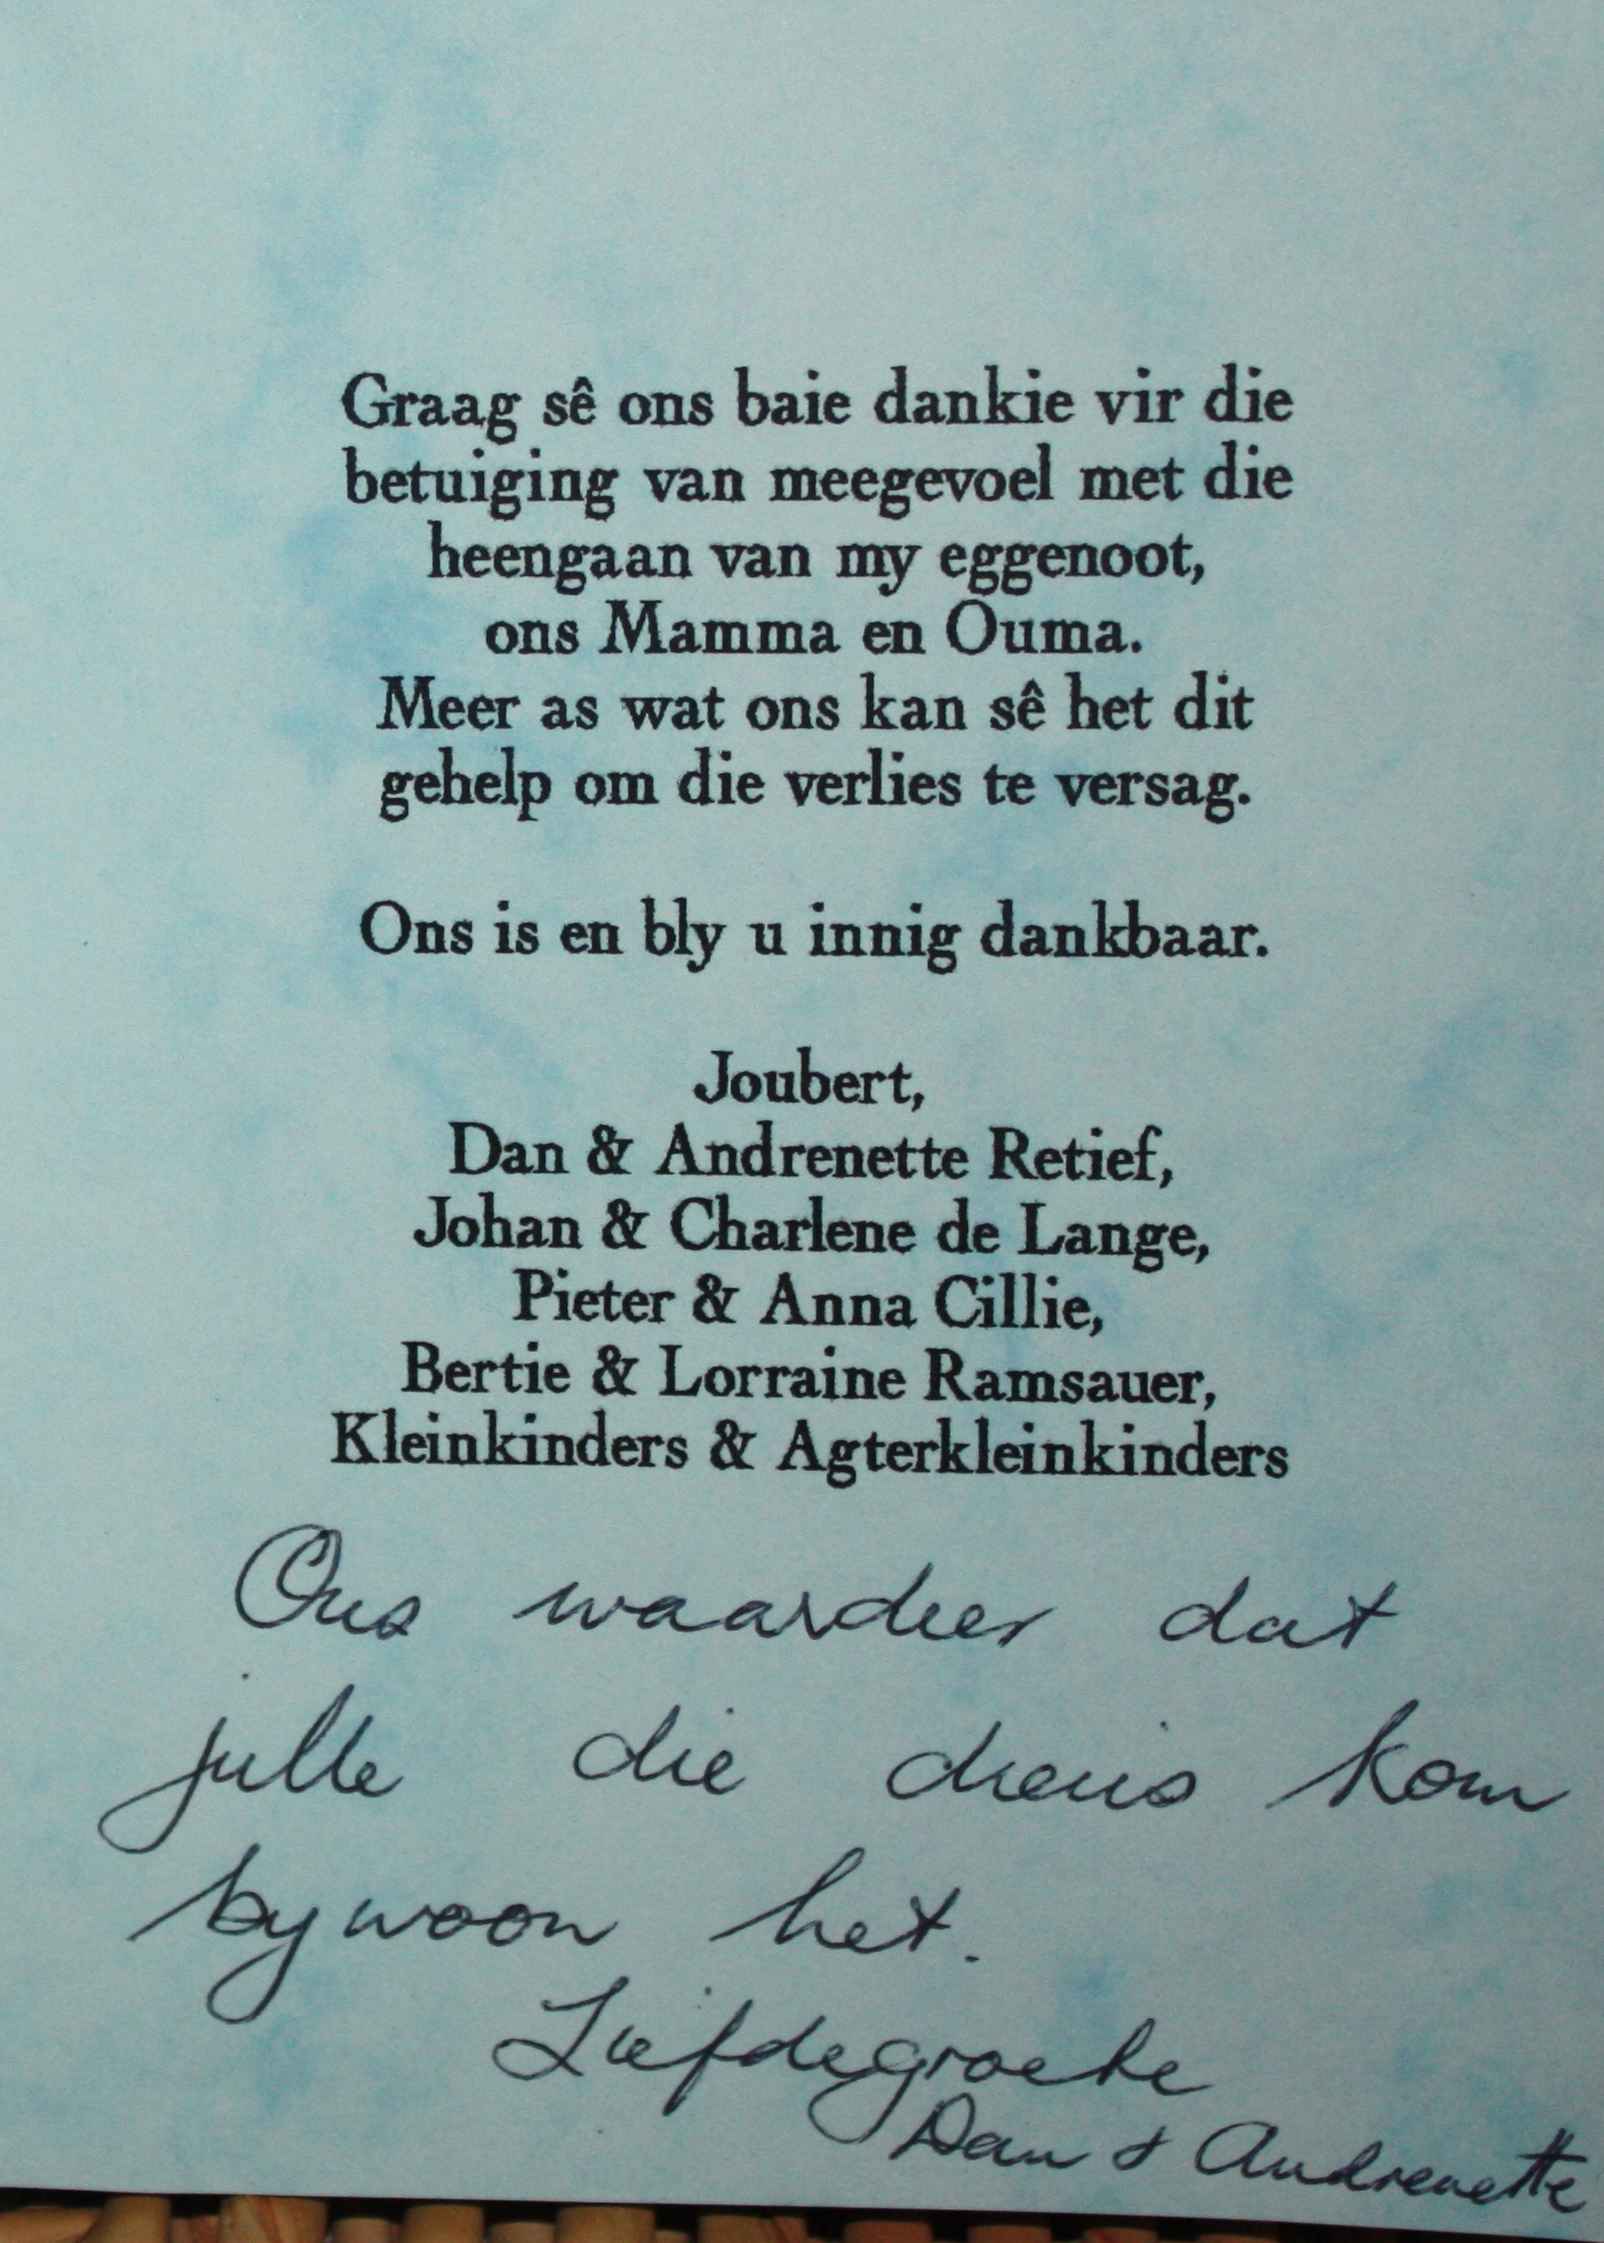 Graag sê ons baie dankie vir die
betuiging van meegevoel met die
heengaan van my eggenoot,
ons Mamma en Ouma.
Meer as wat ons kan sê het dit
gehelp om die verlies te versag.
Ons is en bly u innig dankbaar.
Joubert,
Dan & Andrenette Retief,
Johan & Charlene de Lange,
Pieter & Anna Cillie,
Bertie & Lorraine Ramsauer,
Kleinkinders & Agterkleinkinders
Ons waardeer dat
julle die diens kom
bywoon het.
Liefdegroete
Dan & Andrenette